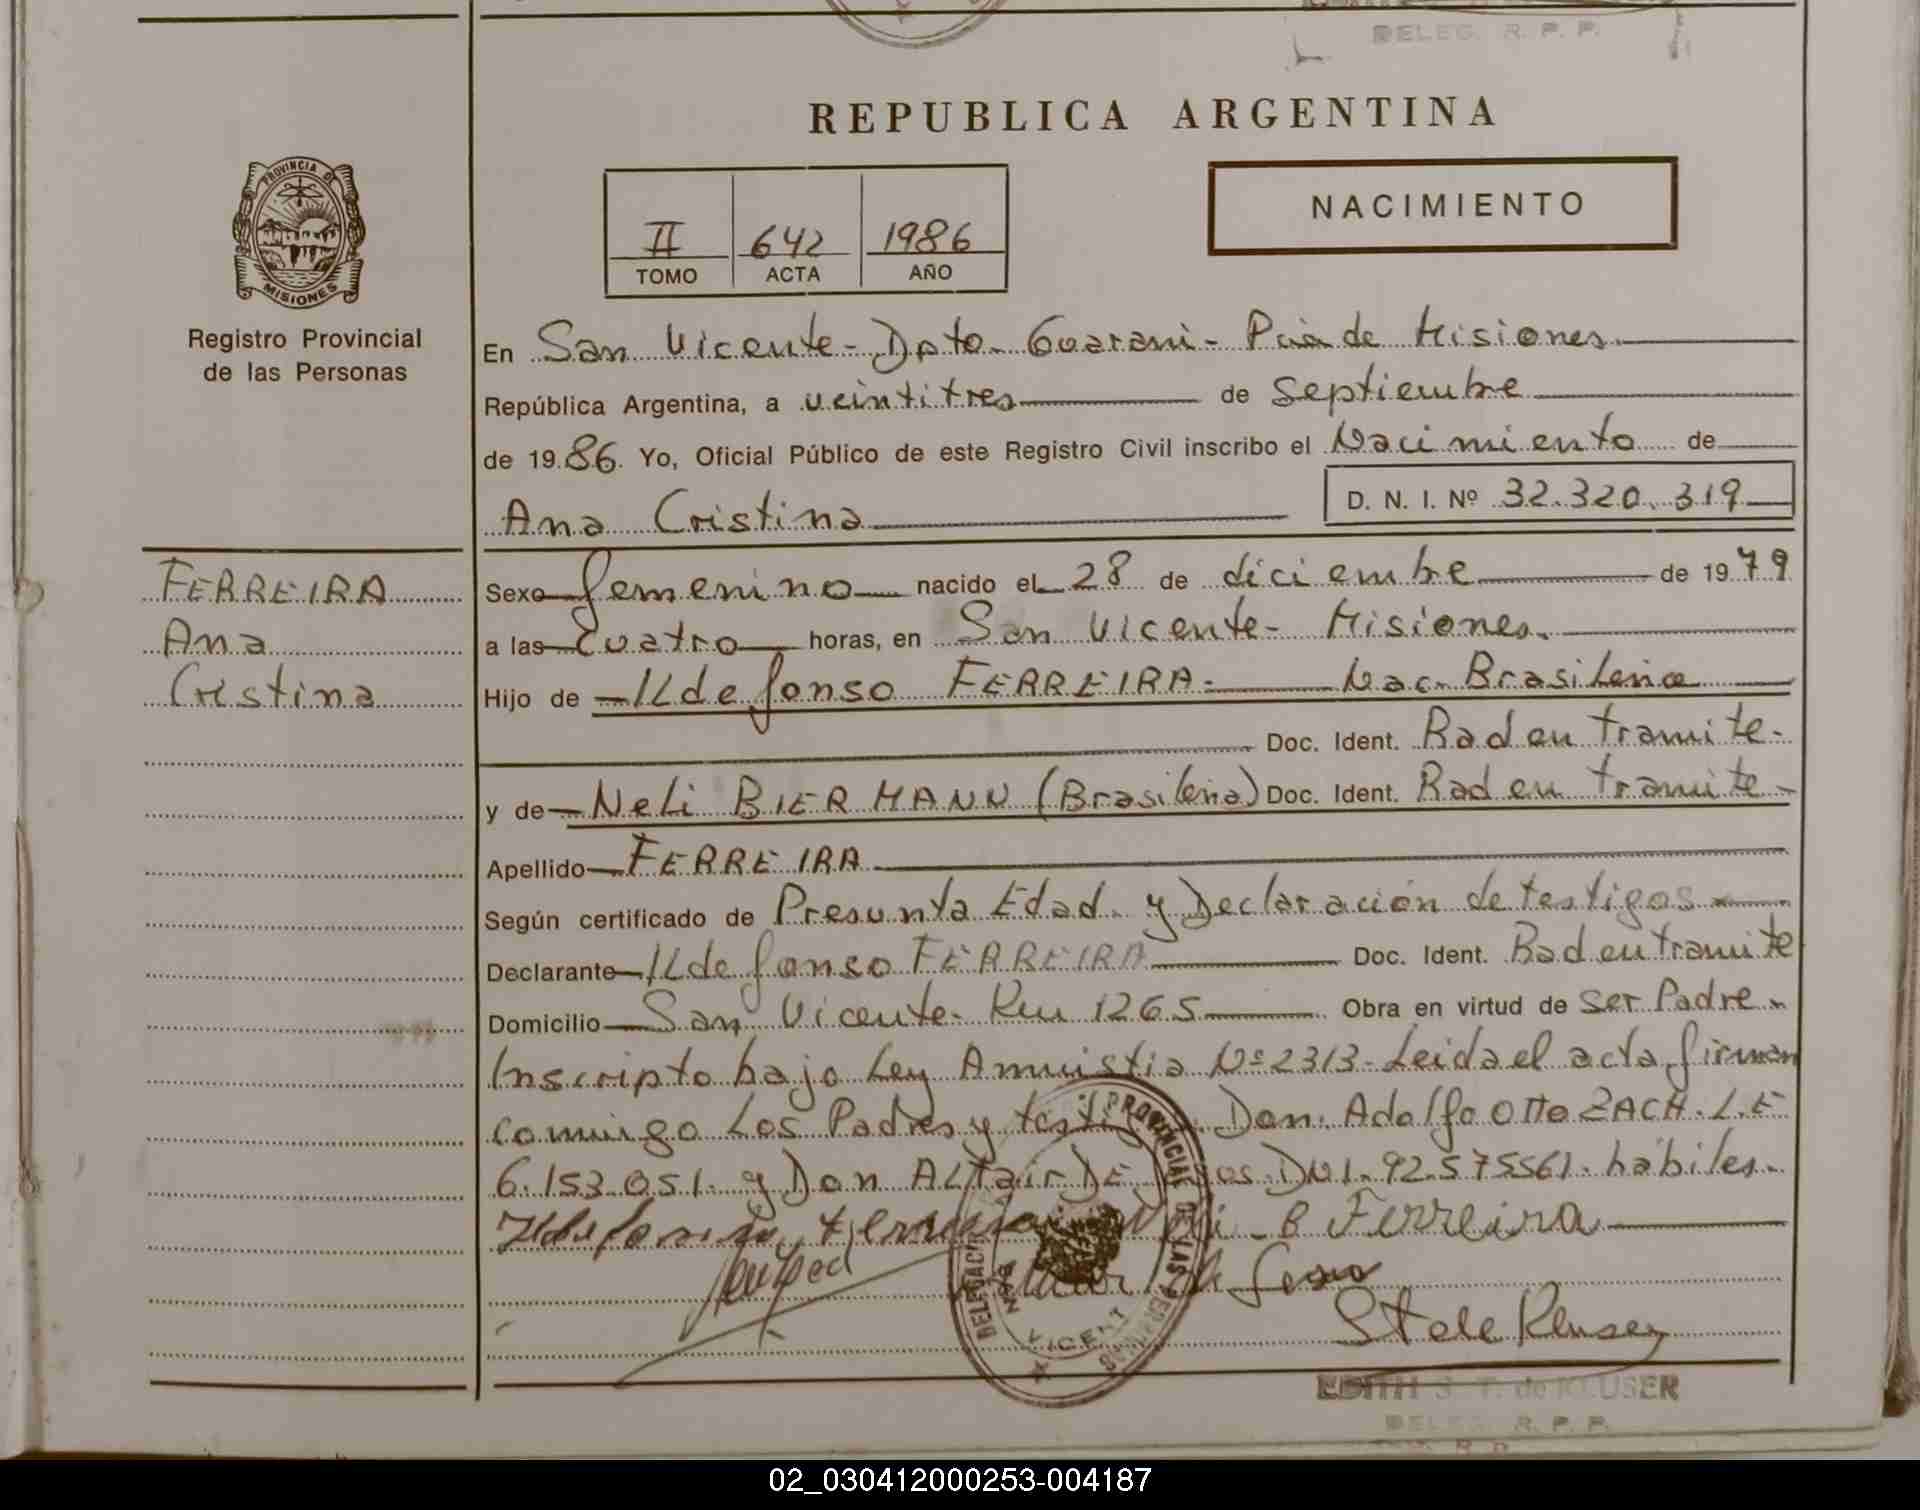 DELEG. R. P. P.
REPUBLICA ARGENTINA
PROVINCIA DE
MISIONES
Registro Provincial
de las Personas
II 642 1986
TOMO ACTA AÑO
NACIMIENTO
En San Vicente - Dpto - Guaraní - Pcia de Misiones.
República Argentina, a veintitres de Septiembre
de 1986. Yo, Oficial Público de este Registro Civil inscribo el Nacimiento de
Ana Cristina
D. N. I. Nº 32.320.319
FERREIRA
Ana
Cristina
Sexo femenino nacido el 28 de diciembre de 1979
a las Cuatro horas, en San Vicente - Misiones.
Hijo de Ildefonso FERREIRA - Nac. Brasileña
Doc. Ident. Rad en tramite -
y de Neli BIERMANN (Brasileña) Doc. Ident. Rad en tramite -
Apellido FERREIRA
Según certificado de Presunta Edad y Declaración de testigos
Declarante Ildefonso FERREIRA Doc. Ident. Rad en tramite
Domicilio San Vicente - Km 1265 Obra en virtud de ser Padre -
Inscripto bajo Ley Amnistia Nº 2313 - Leida el acta, firman
comigo Los Padres y Don Adolfo Otto ZACH. L.E
6.153.051. y Don ALtair DE DNI. 92.575561. hábiles.
Ildefonso Ferreira Neli B Ferreira
DELEGACION PROVINCIAL DE LAS PERSONAS
SAN VICENTE
EDITH S. T. de KLUSER
DELEG. R. P. P.
02_030412000253-004187